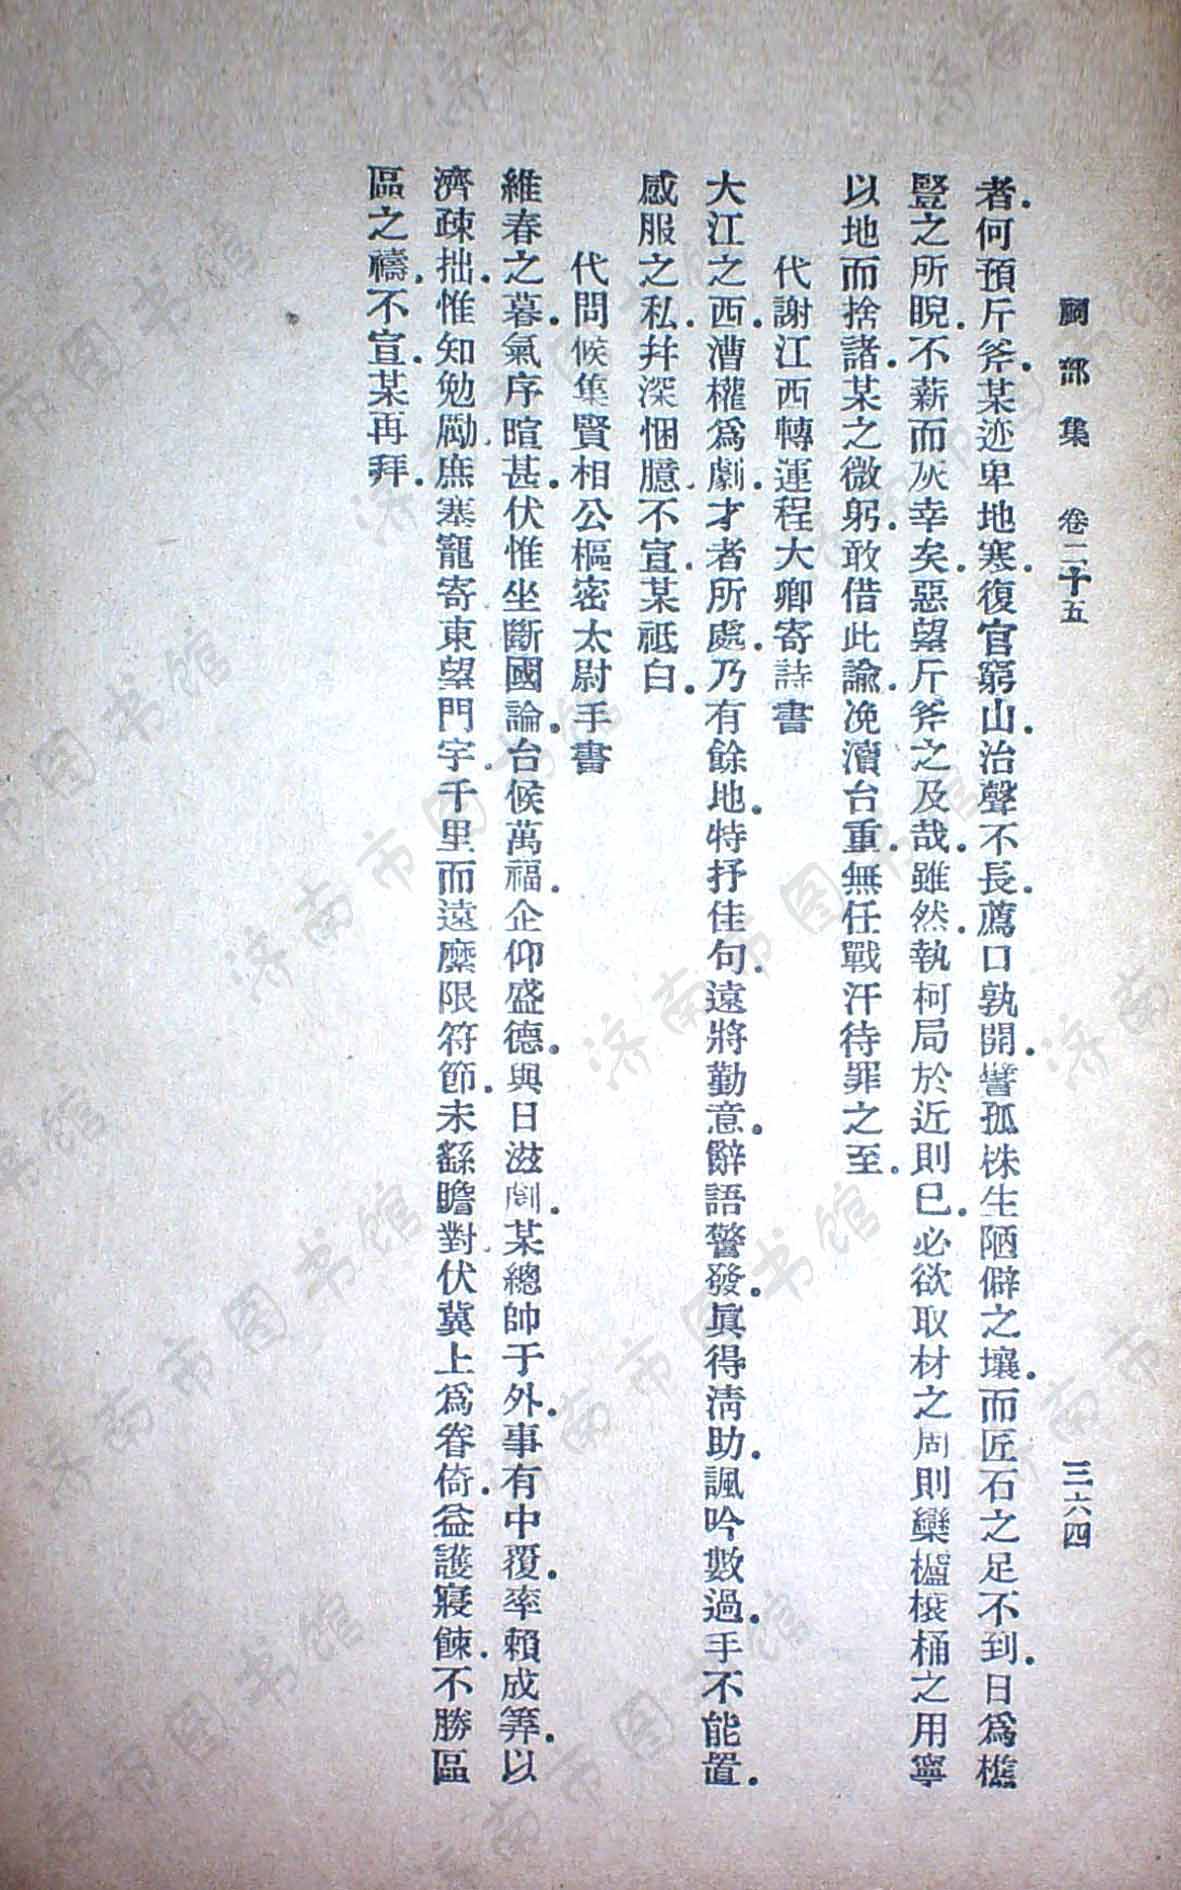 祠部集　卷二十五　三六四
者．何預斤斧．某迹卑地寒．復官窮山．治聲不長．薦口孰開．譬孤株生陋僻之壤．而匠石之足不到．日爲樵
豎之所睨．不薪而灰幸矣．惡望斤斧之及哉．雖然．執柯局於近則已．必欲取材之周則欒櫨榱桷之用寧
以地而捨諸．某之微躬．敢借此諭．浼瀆台重．無任戰汗待罪之至．
代謝江西轉運程大卿寄詩書
大江之西．漕權爲劇．才者所處．乃有餘地．特抒佳句．遠將勤意．辭語警發．眞得淸助．諷吟數過．手不能置．
感服之私．幷深悃臆．不宣．某祗白．
代問候集賢相公樞密太尉手書
維春之暮．氣序暄甚．伏惟坐斷國論．台候萬福．企仰盛德．與日滋劇．某總帥于外．事有中覆．率賴成筭．以
濟疎拙．惟知勉勵．庶塞寵寄．東望門宇．千里而遠．縻限符節．未繇瞻對．伏冀上爲眷倚．益護寢餗．不勝區
區之禱．不宣．某再拜．
济南市图书馆